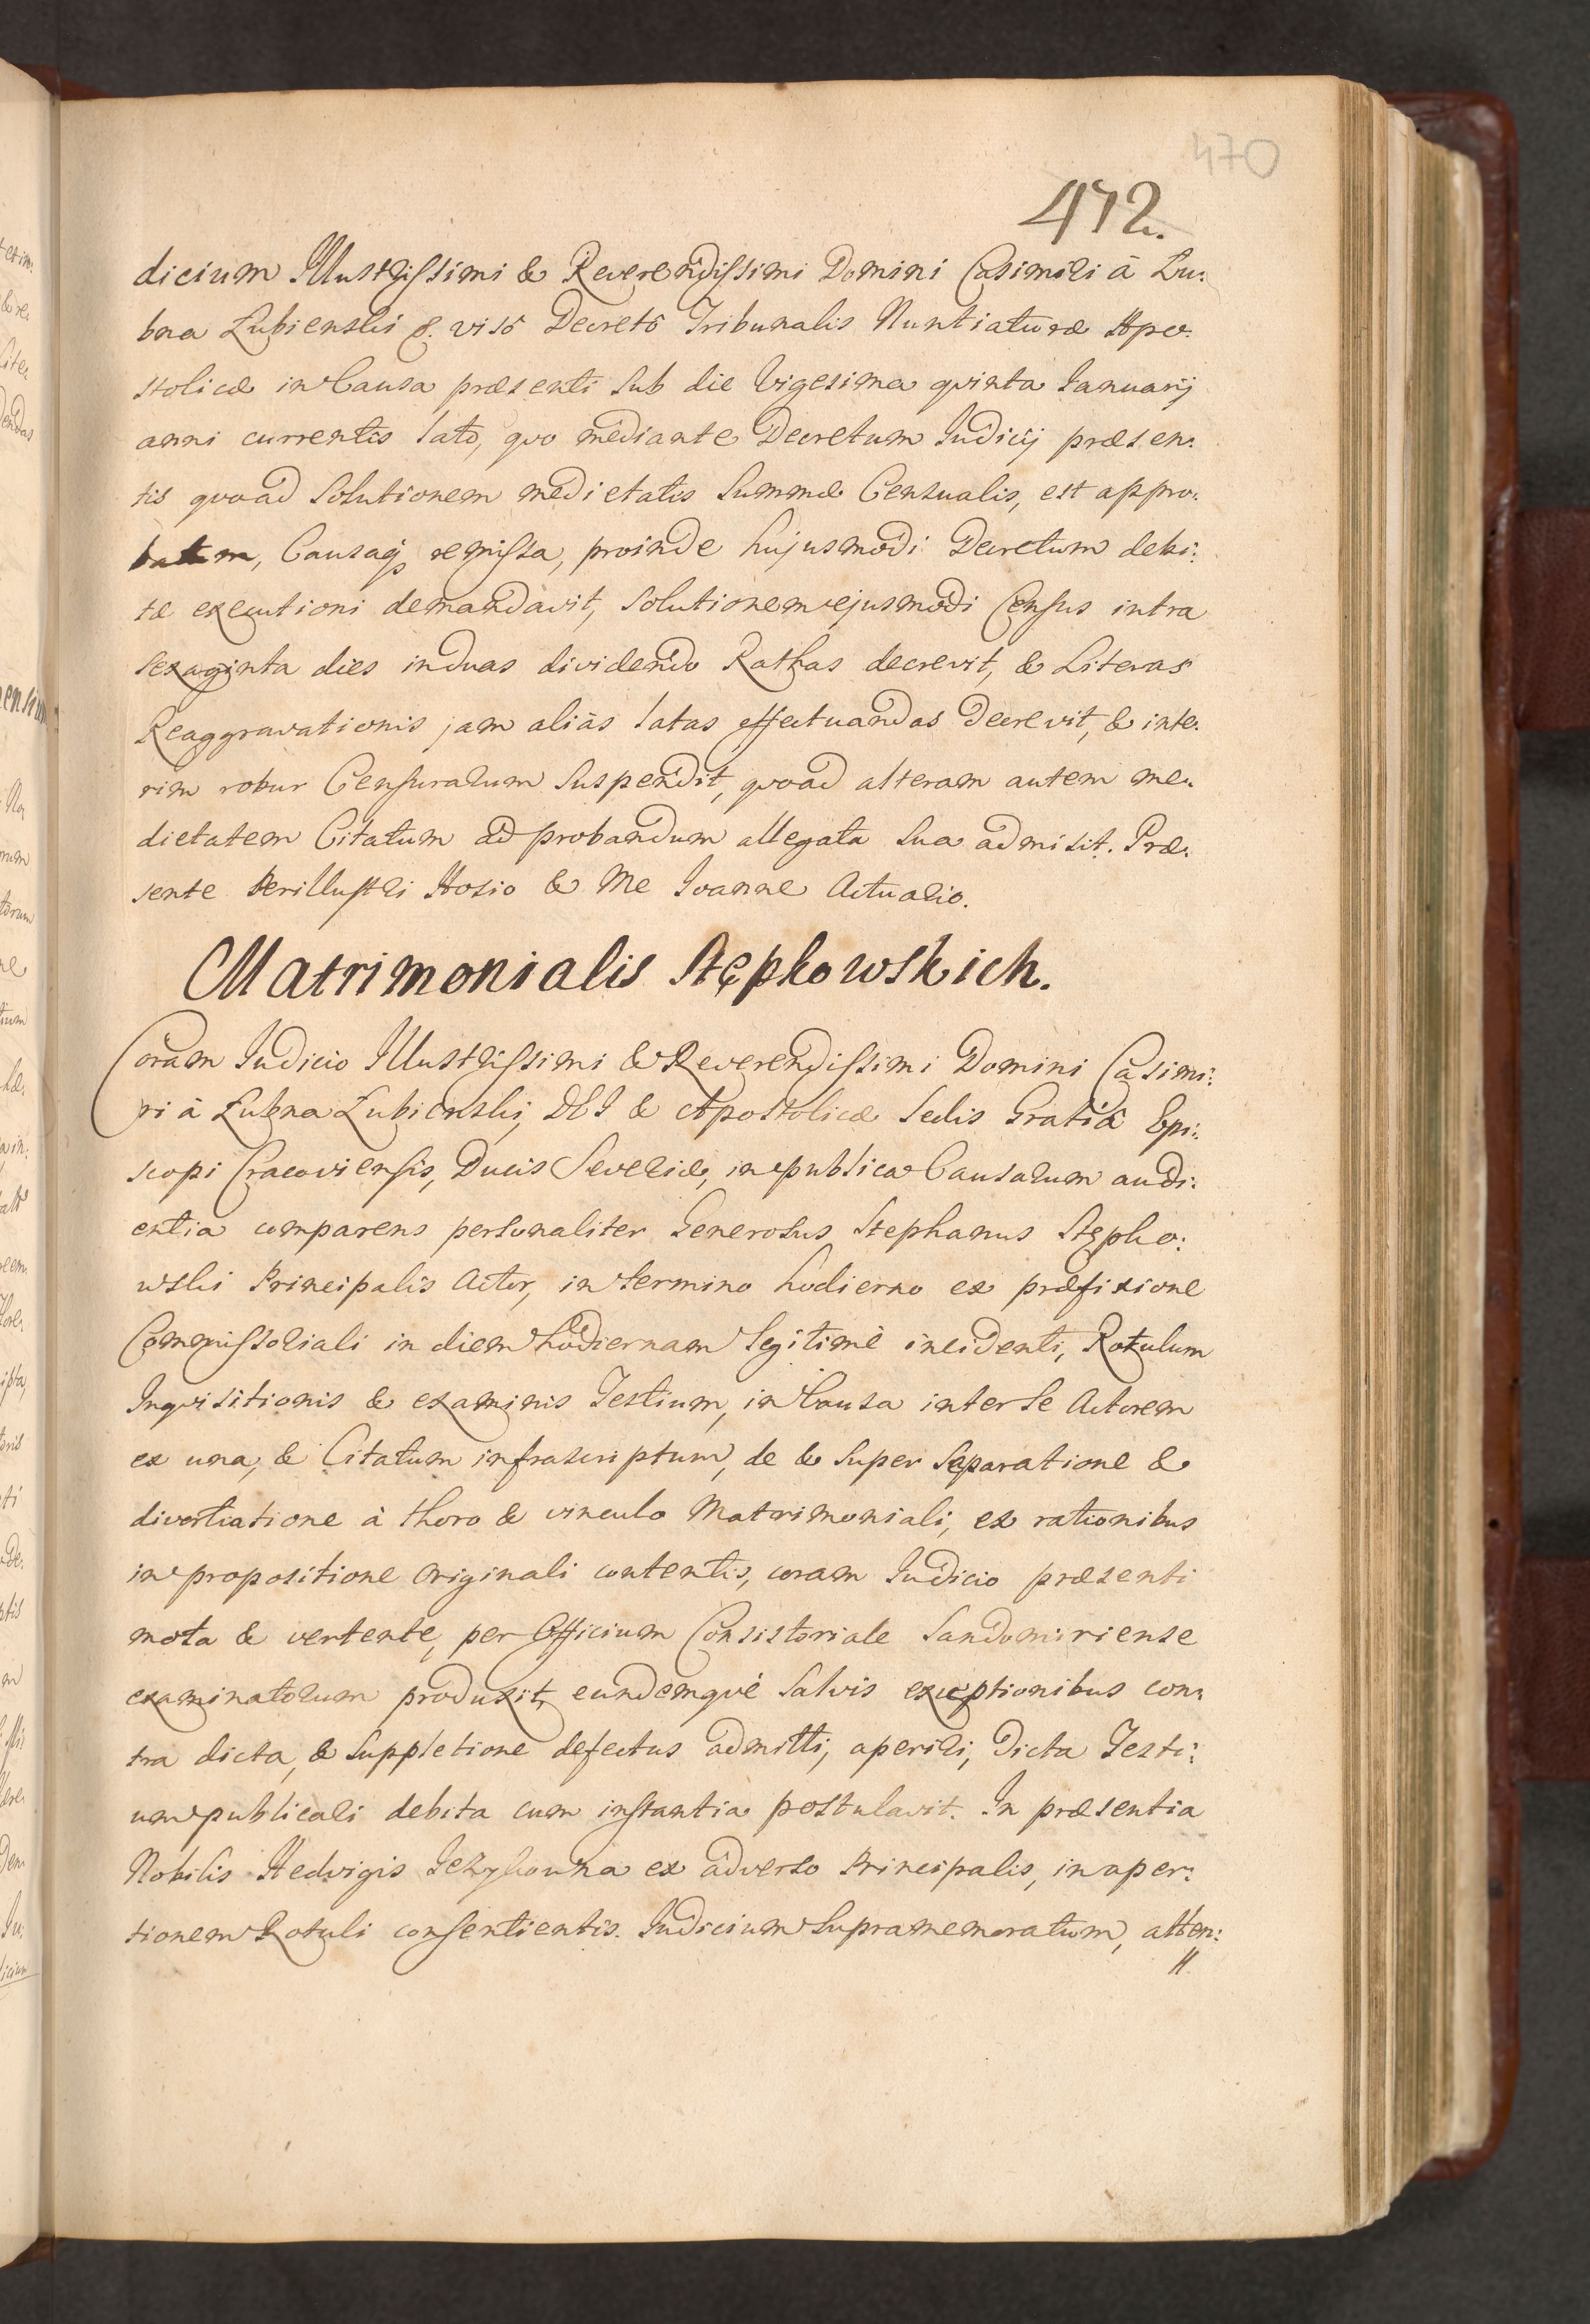 470
472.
dicium Illustrissimi & Reverendissimi Domini Casimiri à Łu:
bna Łubienski &. visô Decretô Tribunalis Nuntiaturæ Apo:
stolicæ in Causa præsenti sub die Vigesima qvinta Ianuarij
anni currentis latô, qvo mediante Decretum Iudicij præsen:
tis qvoad solutionem medietatis Summæ Censualis, est appro:
batum, Causaq; remissa, proinde hujusmodi Decretum debi:
tæ executioni demandavit, solutionem ejusmodi Census intra
sexaginta dies in duas dividendo Rathas decrevit, & Literas
Reaggravationis jam aliàs latas effectuandas decrevit, & inte:
rim robur Censurarum suspendit, qvoad alteram autem me:
dietatem Citatum ad probandum allegata sua admisit. Præ:
sente Perillustri Hosio & Me Ioanne Actuario.
Matrimonialis Stępkowskich.
Coram Iudicio Illustrissimi & Reverendissimi Domini Casimi:
ri à Łubna Łubienski, DEI & Apostolicæ Sedis Gratiâ Epi:
scopi Cracoviensis, Ducis Severiæ, in publica Causarum audi:
entia comparens personaliter Generosus Stephanus Stępko:
wski Principalis Actor, in termino hodierno ex præfixione
Commissoriali in diem hodiernam legitimè incidenti, Rotulum
Inqvisitionis & examinis Testium, in Causa inter se Actorem
ex una, & Citatum infrascriptum, de & super separatione &
divortiatione à thoro & vinculo Matrimoniali, ex rationibus
in propositione originali contentis, coram Iudicio præsenti
mota & vertente, per Officium Consistoriale Sandomiriense
examinatorum produxit, eundemqve salvis exceptionibus con:
tra dicta, & suppletione defectus admitti, aperiri, dicta Testi:
um publicari debita cum instantia postulavit. In præsentia
Nobilis Hedvigis Jezykowna ex adverso Principalis, in aper:
tionem Rotuli consentientis. Iudicium supramemoratum, atten:
//